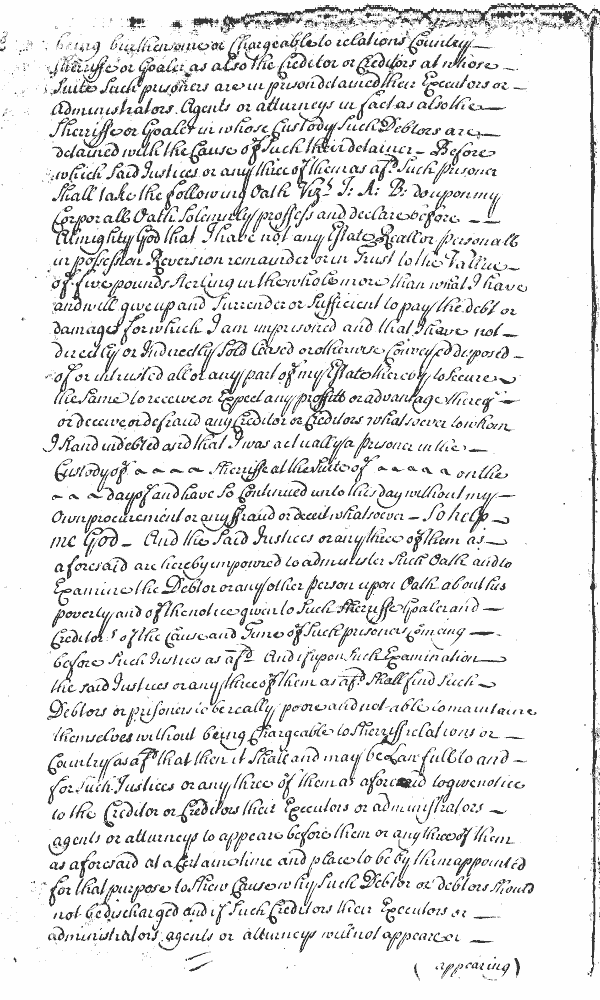 being burthensome or Chargeable to relations Country
Sherriffe or Goaler as also the Creditor or Creditors at whose
Suite Such prisoners are in prison detained their Executors or
Administrators Agents or atturneys in fact as also the
Sherriffe or Goaler in whose Custody Such Debtors are
detained with the Cause of Such their detainer - Before
which Said Justices or any three of them as afd Such prisoner
Shall take the following Oath Vizt I: A: B: do upon my
Corporall Oath Solemnly proffess and declare before
Almighty God that I have not any Estate Reall or personall
in possession Reversion remainder or in Trust to the Vallue
of five pounds sterling in the whole more than what I have
and will give up and Surrender or Sufficient to pay the debt or
damages for which I am imprisoned and that I have not
directly or Indirectly Sold Leased or otherwise Conveyed disposed
of or intrusted all or any part of my Estate thereby to Secure
the Same to receive or Expect any proffitt or advantage thereof
or deceive or defraud any Creditor or Creditors whatsoever to whom
I Stand indebted and that I was actually a prisoner in the
Custody of ~ ~ ~ ~ Sherriffe at the Suite of ~ ~ ~ ~ ~ on the
~ ~ ~ day of and have So Continued unto this day without my
Own procurement or any ffraud or deceit whatsoever - So help
me God - And the Said Justices or any three of them as
aforesaid are hereby impowred to administer Such Oath and to
Examine the Debtor or any other person upon Oath about his
poverty and of the notice given to Such Sherriffe Goaler and
Creditors of the Cause and Time of Such prisoners Comeing
before Such Justices as afd. And if upon Such Examination
the said Justices or any three of them as afd Shall find Such
Debtors or prisoners to be really poore and not able to maintaine
themselves without being Chargeable to Sherriff relations or
Country as afd that then it Shall and may be Lawfull to and
for Such Justices or any three of them as aforesaid to give notice
to the Creditor or Creditors their Executors or administrators
agents or atturneys to appeare before them or any three of them
as aforesaid at a Certaine time and place to be by them appointed
for that purpose to Shew Cause why Such Debtor or debtors Should
not be discharged and if Such Creditors their Executors or
administrators agents or atturneys will not appeare or
(appearing)